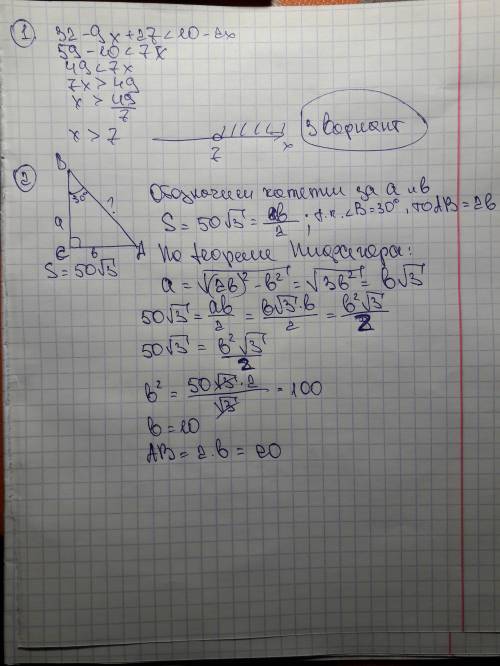 ① 32-9x+27<10-2x
59-10<7x
49<7x
7x>49
x > 49/7
x > 7
7 x
3 вариант
②
B
30°
?
a
C b A
S=50√3
Обозначим катеты за a и b
S = 50√3 = ab/2, т.к. ∠B=30°, то AB=2b
По теореме Пифагора:
a = √((2b)²-b²) = √(3b²) = b√3
50√3 = ab/2 = b√3·b/2 = b²√3/2
50√3 = b²√3/2
b² = 50√3·2/√3 = 100
b=10
AB = 2·b = 20